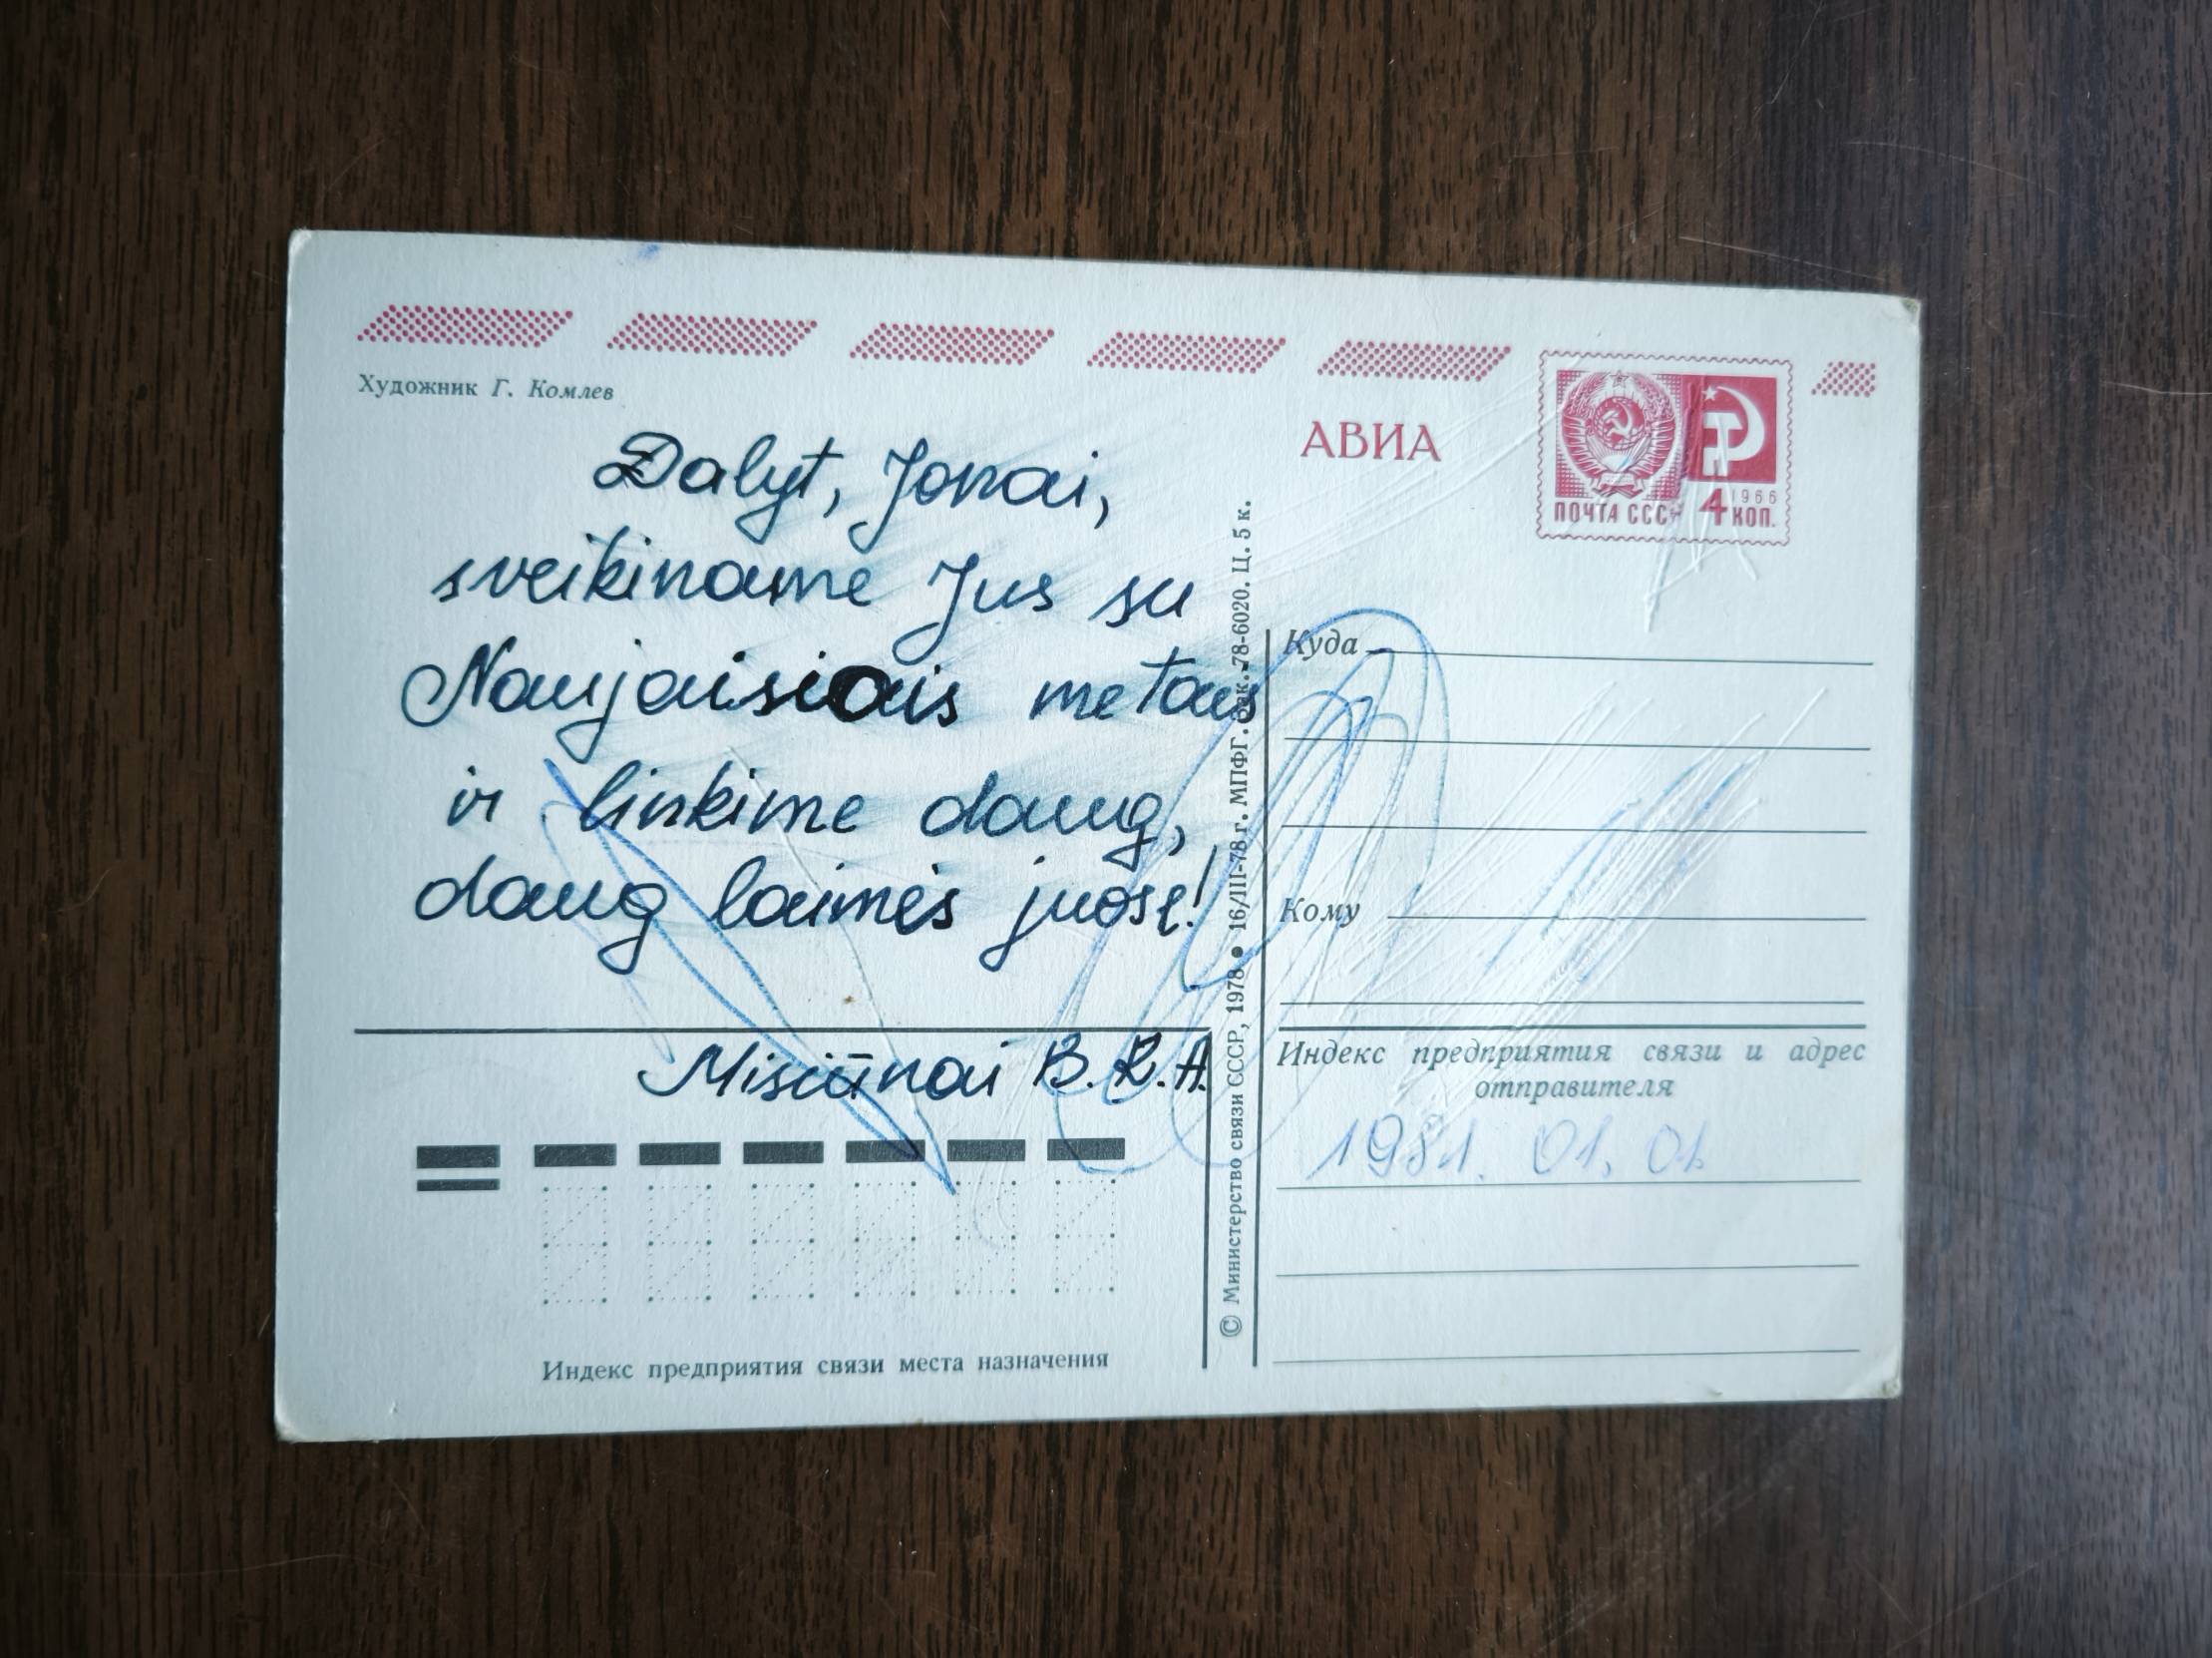 Художник Г. Комлев
Dalyt, Jonai,
sveikiname Jus su
Naujaisiais metais
ir linkime daug,
daug laimės juose!
Misiūnai B. R. A.
Индекс предприятия связи места назначения
© Министерство связи СССР, 1978 ● 16/III-78 г. МПФГ. Зак. 78-6020. Ц. 5 к.
АВИА
1966
ПОЧТА СССР 4 КОП.
Куда
Кому
Индекс предприятия связи и адрес
отправителя
1981. 01. 01.